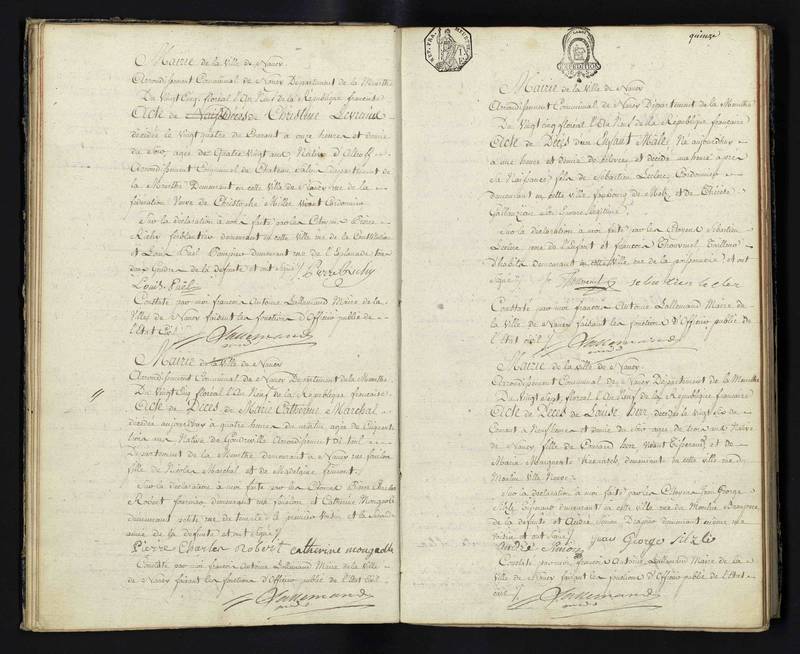 Mairie de la ville de Nancy
Arrondissement Communal de Nancy Département de la Meurthe
Du Vingt Cinq floréal l'An Neuf de la République française
Acte de Décès de Christine
décédée le Vingt quatre du Courant à onze heures et demie
du Soir, agée de Quatre Vingt ans, Native d'
Arrondissement Communal de Chateau Salin département de
la Meurthe Demeurant en cette ville de Nancy rue de la
fédération Veuve de Christophe Miller Cordonnier
Sur la déclaration à moi faite par les Citoyens Pierre
Richy ferblantier demeurant en cette ville rue de la Constitution
et Louis demeurant rue de l'Esplanade
de la défunte et ont signé Pierre Richy
Louis
Constaté par moi françois Antoine Lallemand Maire de la
Ville de Nancy faisant les fonctions d'Officier public de
l'Etat Civil
Lallemand
Mairie de la ville de Nancy
Arrondissement Communal de Nancy Département de la Meurthe
Du Vingt Cinq floréal l'An Neuf de la République française
Acte de Décès de Marie Catherine Marchal
décédée aujourd'huy à quatre heures du matin agée de Cinquante
trois ans Native de Gondreville Arrondissement de toul
Département de la Meurthe demeurant à Nancy rue
fille de Nicolas Marchal et de
Sur la déclaration à moi faite par les Citoyens Pierre Charles
Robert demeurant rue et Catherine Mongeolle
demeurant petite rue de le premier Voisin et la Seconde
amie de la défunte et ont signé
Pierre Charles Robert Catherine mongeolle
Constaté par moi françois Antoine Lallemand Maire de la Ville
de Nancy faisant les fonctions d'Officier public de l'Etat Civil
Lallemand
REP. FRA.
quinze
Mairie de la ville de Nancy
Arrondissement Communal de Nancy Département de la Meurthe
Du Vingt cinq floréal l'An Neuf de la République française
Acte de Décès d'un Enfant Male, Né aujourd'huy
à une heure et demie de relevée et décédé une heure après
sa Naissance, fils de Sébastien Leclerc Cordonnier
demeurant en cette ville faubourg de Metz et de Thérèse
son Epouse légitime
Sur la déclaration à moi faite par les Citoyens Sébastien
Leclerc père de l'Enfant et françois Thouvenel Tailleur
d'habits demeurant en cette Ville, rue de la et ont
signé Thouvenel sebastien le cler
Constaté par moi françois Antoine Lallemand Maire de
la Ville de Nancy faisant les fonctions d'Officier public de
l'Etat civil
Lallemand
Mairie de la ville de Nancy
Arrondissement Communal de Nancy Département de la Meurthe
Du Vingt Sept floréal l'An Neuf de la République française
Acte de Décès de décédée le Vingt Six du
Courant à Neuf heures et demie du Soir agée de trois ans Native
de Nancy, fille de Vivant et de
Marie Marguerite demeurant en cette ville rue du
Moulin Ville Neuve
Sur la déclaration à moi faite par les Citoyens Jean George
demeurant en cette ville rue du Moulin
de la défunte et André Simon demeurant même rue
Voisin et ont signé Jean George
André Simon
Constaté par moi françois Antoine Lallemand Maire de la
Ville de Nancy faisant les fonctions d'Officier public de l'Etat
civil
Lallemand